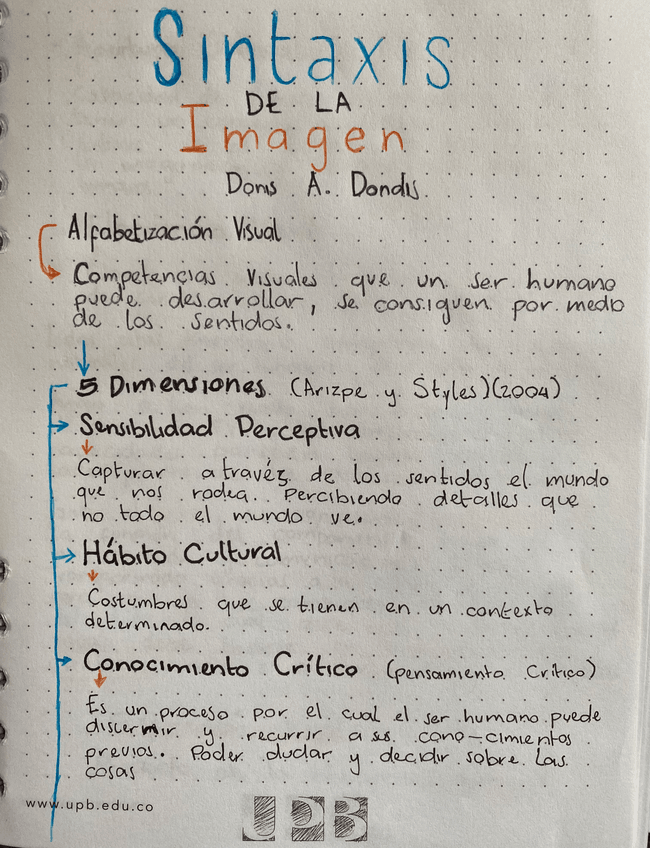 Sintaxis
DE LA
Imagen
Donis A. Dondis.
Alfabetización Visual
Competencias Visuales que un ser humano
puede desarrollar, se consiguen por medio
de los sentidos.
5 Dimensiones (Arizpe y Styles)(2004)
Sensibilidad Perceptiva
Capturar a través de los sentidos el mundo
que nos rodea. Percibiendo detalles que
no todo el mundo ve.
Hábito Cultural
Costumbres que se tienen en un contexto
determinado.
Conocimiento Crítico (pensamiento Crítico)
Es un proceso por el cual el ser humano puede
discernir y recurrir a sus cono-cimientos
previos. Poder dudar y decidir sobre las
cosas
www.upb.edu.co
UPB